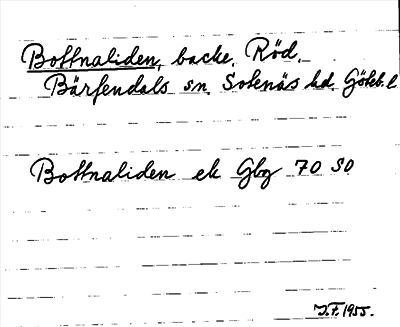 Bottnaliden, backe, Röd,
Bärfendals sn. Sotenäs hd. Göteb. l
Bottnaliden ek Gbg 70 SO
J.F. 1955.